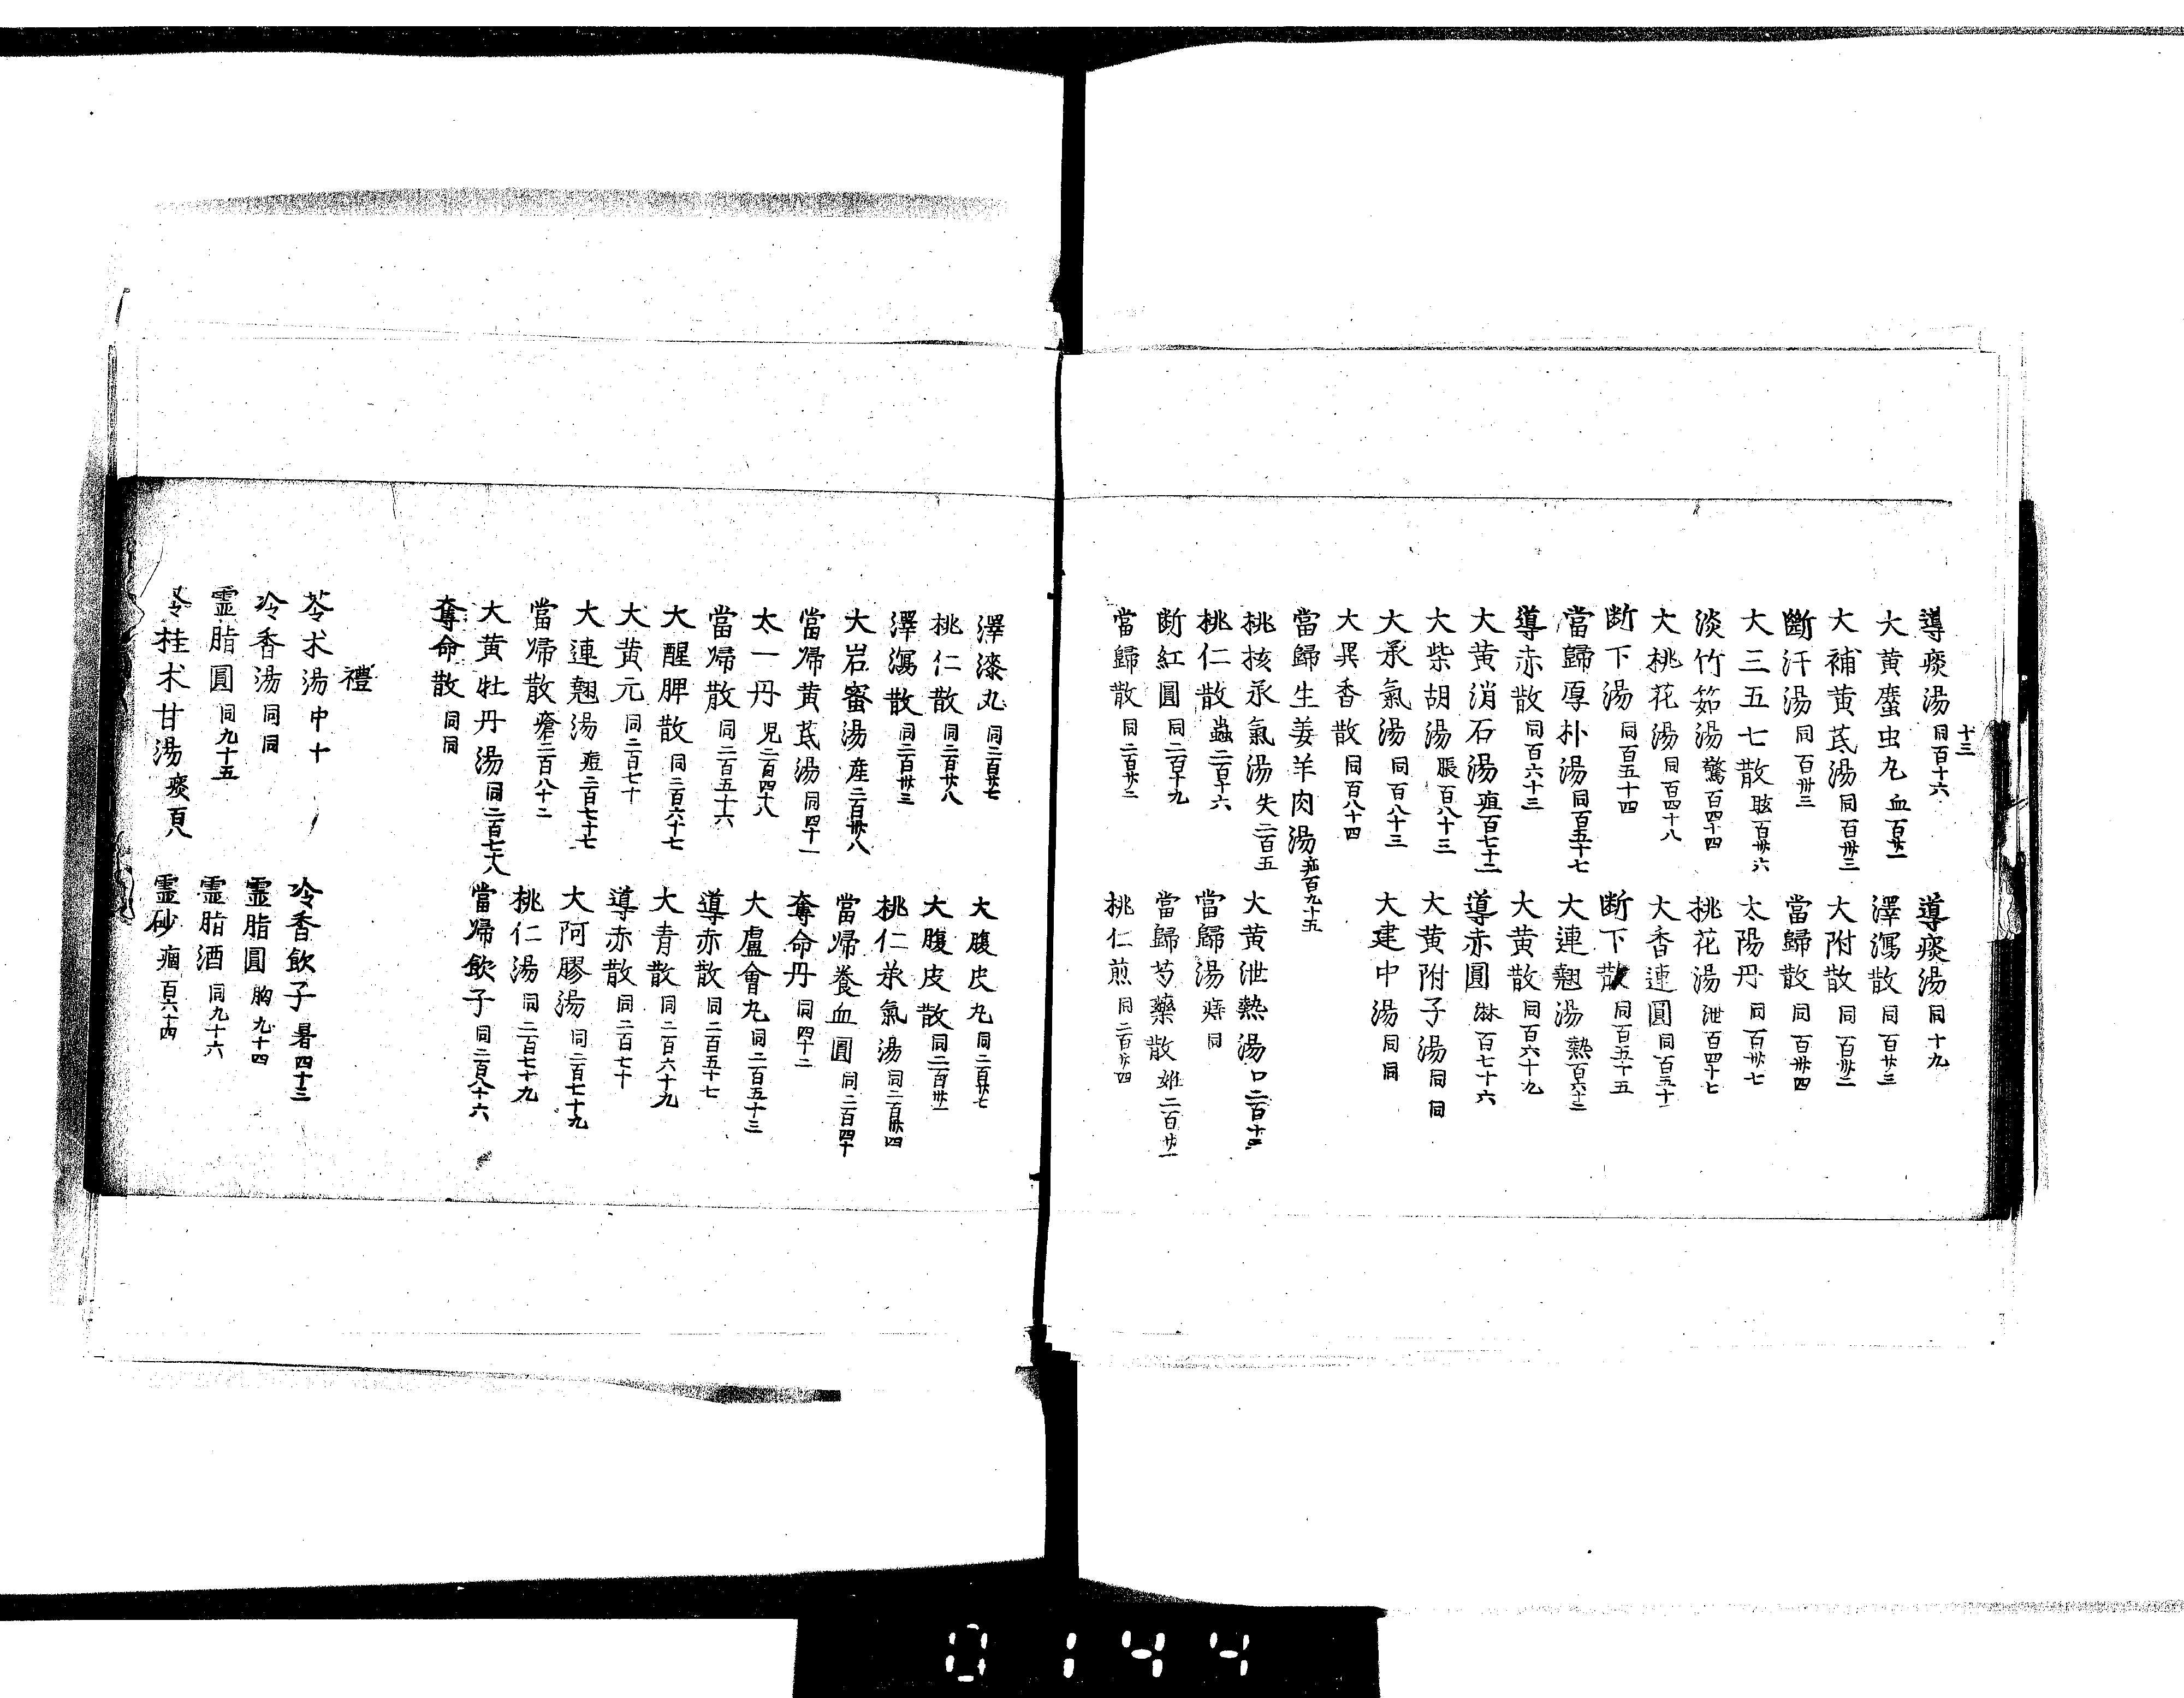 十三
導痰湯 同百十六 導痰湯 同十九
大黄䗪虫丸 血百廿一 澤瀉散 同百廿三
大補黄芪湯 同百卅三 大附散 同百卅二
斷汗湯 同百卅三 當歸散 同百卅四
大三五七散 眩百卅六 太陽丹 同百卅七
淡竹茹湯 驚百四十四 桃花湯 泄百四十七
大桃花湯 同百四十八 大香連圓 同百五十一
断下湯 同百五十四 断下散 同百五十五
當歸厚朴湯 同百五十七 大連翹湯 熱百六十二
導赤散 同百六十三 大黄散 同百六十九
大黄消石湯 疸百七十二 導赤圓 淋百七十六
大柴胡湯 脹百八十三 大黄附子湯 同同
大承氣湯 同百八十三 大建中湯 同同
大異香散 同百八十四
當歸生姜羊肉湯 疝百九十五
桃核承氣湯 失二百五 大黄泄熱湯 口二百十三
桃仁散 蟲二百十六 當歸湯 痔同
断紅圓 同二百十九 當歸芍藥散 姙二百廿一
當歸散 同二百廿二 桃仁煎 同二百廿四
澤漆丸 同二百廿七 大腹皮丸 同二百廿七
桃仁散 同二百廿八 大腹皮散 同二百卅一
澤瀉散 同二百卅三 桃仁承氣湯 同二百卅四
大岩蜜湯 産二百卅八 當帰養血圓 同二百四十
當帰黄芪湯 同四十一 奪命丹 同四十二
太一丹 児二百四十八 大盧會丸 同二百五十三
當帰散 同二百五十六 導赤散 同二百五十七
大醒脾散 同二百六十七 大青散 同二百六十九
大黄元 同二百七十 導赤散 同二百七十
大連翹湯 痘二百七十七 大阿膠湯 同二百七十九
當帰散 瘡二百八十二 桃仁湯 同二百七十九
大黄牡丹湯 同二百七十八 當帰飲子 同二百八十六
奪命散 同同
禮
苓朮湯 中十 冷香飲子 暑四十三
冷香湯 同同 霊脂圓 胸九十四
霊脂圓 同九十五 霊脂酒 同九十六
苓桂朮甘湯 痰百八 霊砂 痼百六十四
0144